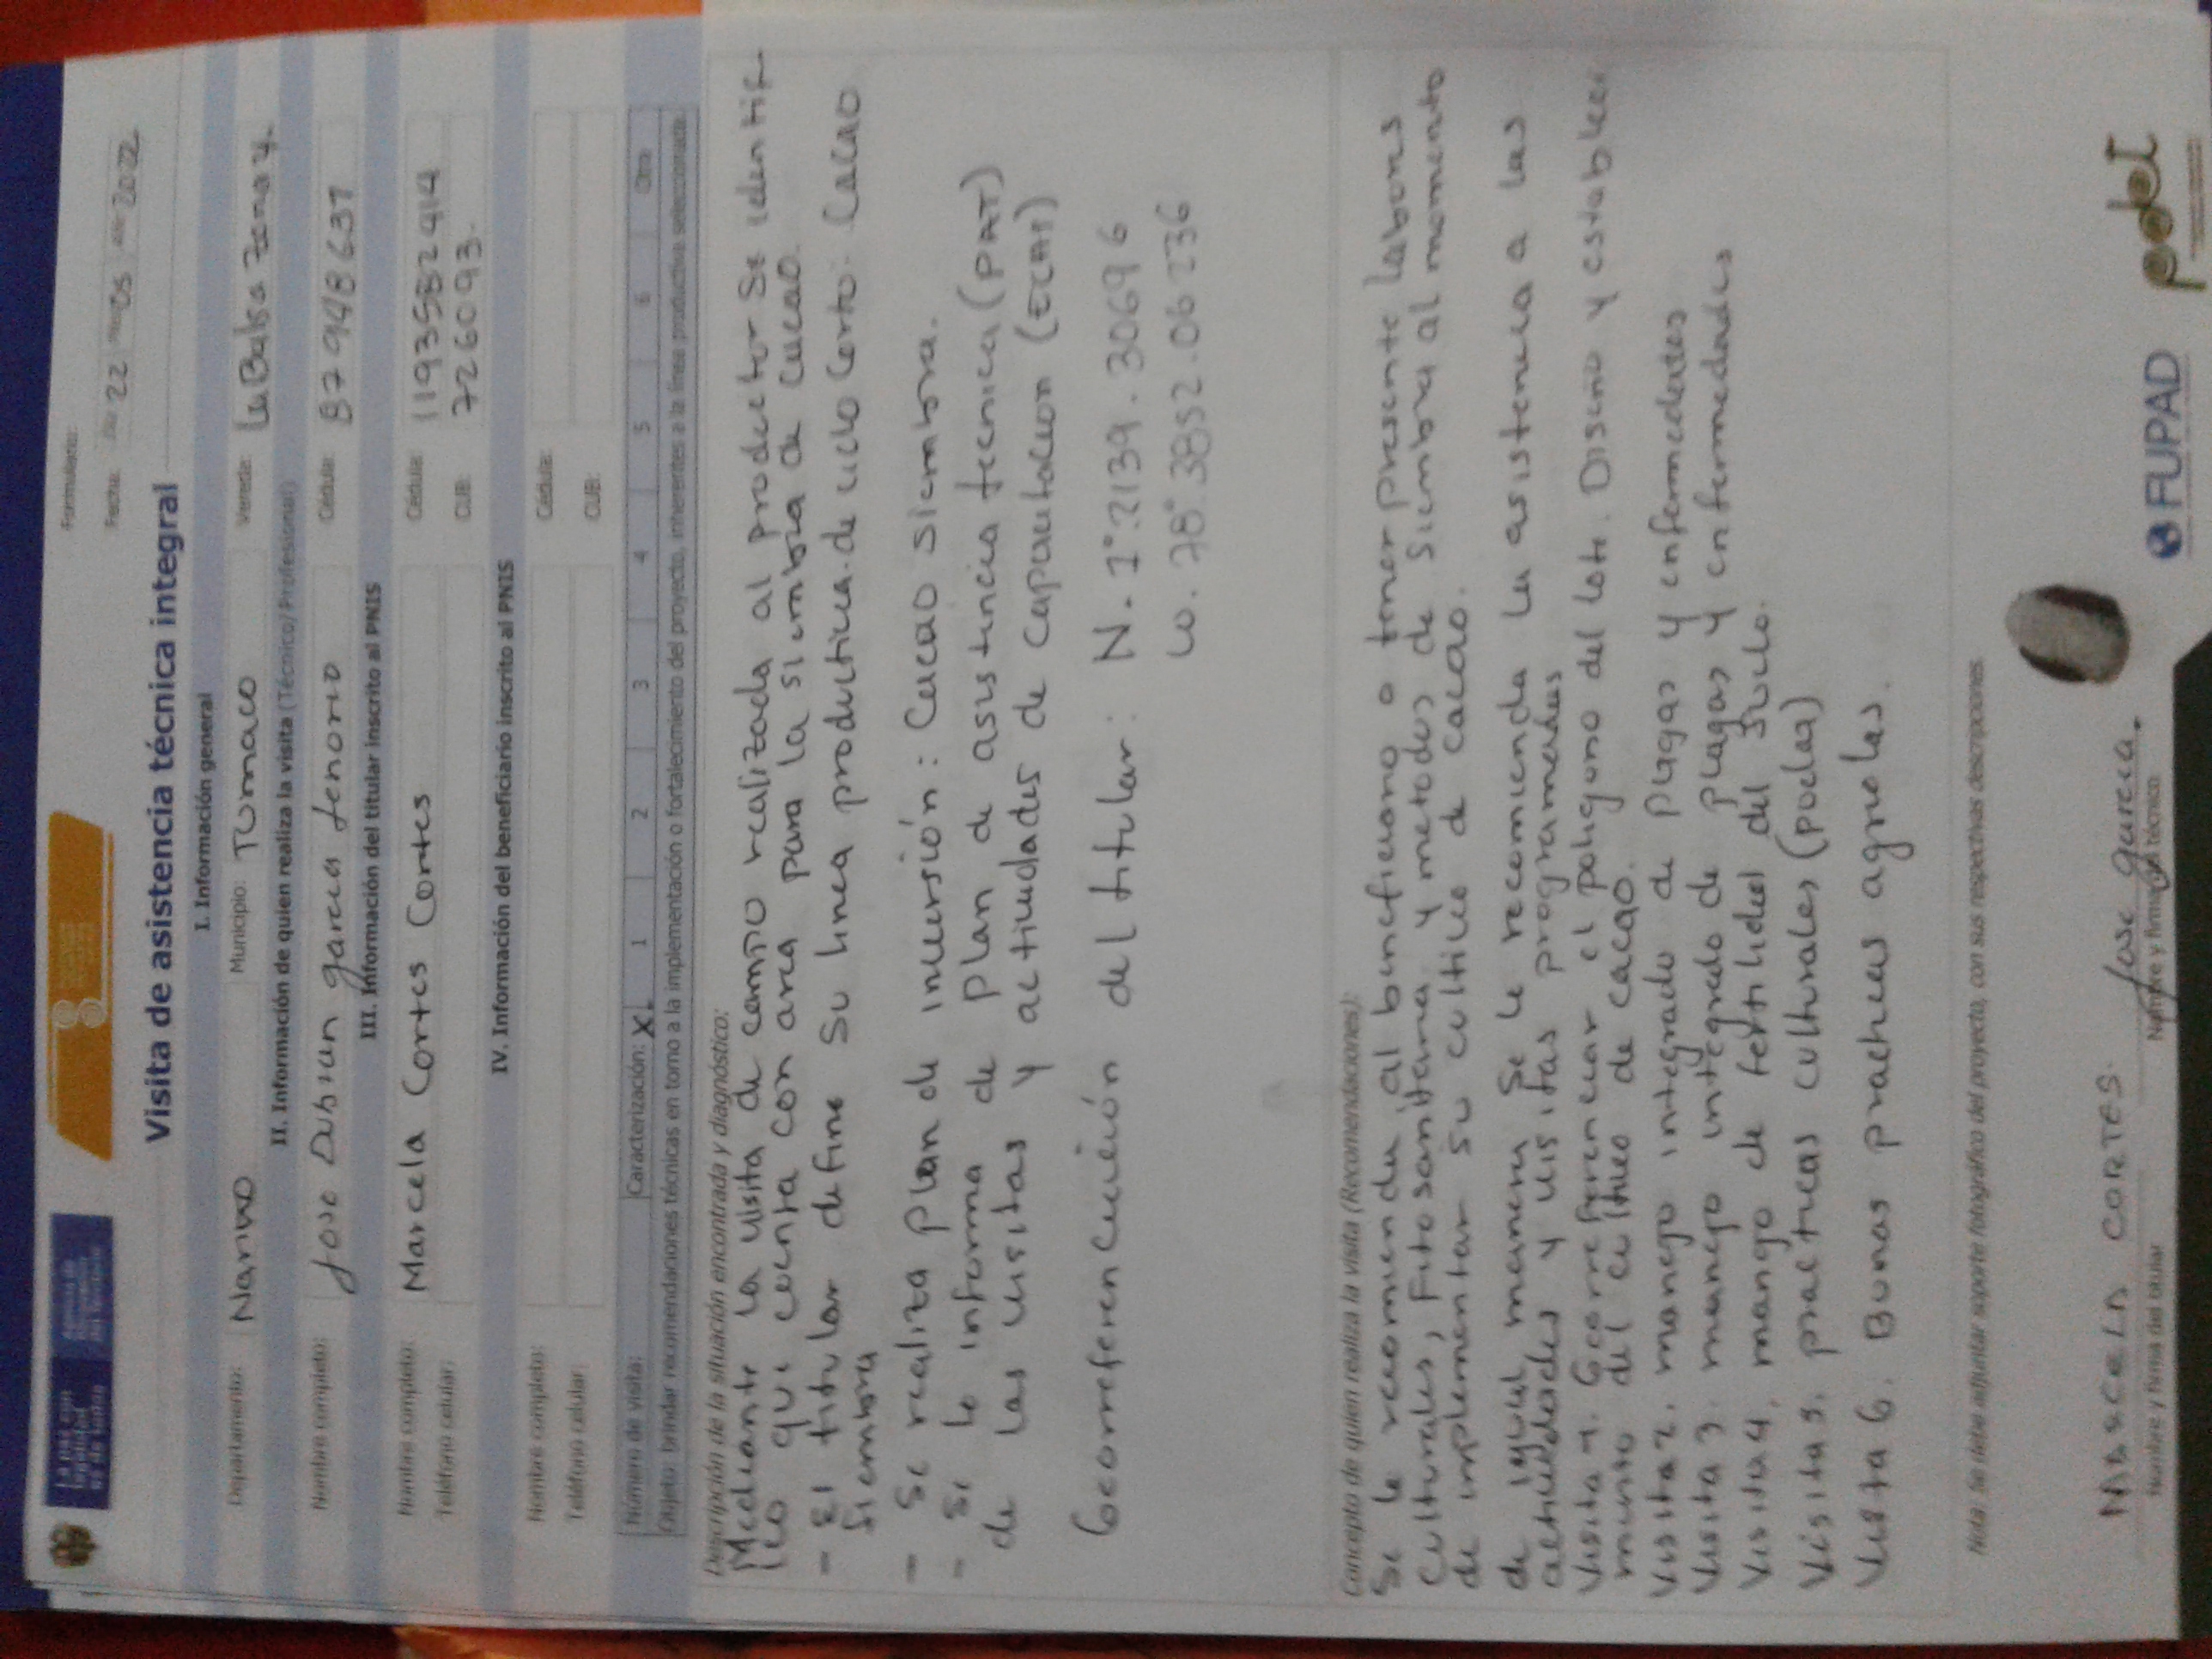 Formulario:
Fecha: 22 05 2022
Visita de asistencia técnica integral
I. Información general
Departamento: Narino Municipio: Tumaco Vereda:
II. Información de quien realiza la visita (Técnico/Profesional)
Nombre completo: Jose Dubian garcia tenorio Cédula: 87948637
III. Información del titular inscrito al PNIS
Nombre completo: Marcela Cortes Cortes Cédula: 1193582414
Teléfono celular: CUB: 726093.
IV. Información del beneficiario inscrito al PNIS
Nombre completo: Cédula:
Teléfono celular: CUB:
Número de visita: Caracterización: X 1 2 3 4 5 6 Otra
Objeto: brindar recomendaciones técnicas en torno a la implementación o fortalecimiento del proyecto, inherentes a la línea productiva seleccionada.
Descripción de la situación encontrada y diagnóstico:
Mediante la visita de campo realizada al productor Se identif-
ico que cuenta con area para la siembra de cacao.
- El titular define su linea productiva de ciclo Corto: Cacao
Siembra
- Se realiza plan de inversión: Cacao Siembra.
- Se le informa de plan de asistencia tecnica (PAT)
de las visitas y actividades de Capacitacion (ECAS)
Georreferenciación del titular: N. 1°.2139.30696
W. 78°.3852.06236
Concepto de quien realiza la visita (Recomendaciones):
Se le recomienda al beneficiario a tener presente labores
Culturales, Fitosanitaria y metodos de Siembra al momento
de implementar su cultivo de cacao.
de igual manera Se le recomienda la asistencia a las
actividades y visitas programadas
Visita 1. Georreferenciar el poligono del lote. Diseño y estableci
miento del cultivo de cacao.
Visita 2. manejo integrado de plagas y enfermedades
Visita 3. manejo integrado de plagas y enfermedades
Visita 4. manejo de fertilidad del Suelo.
Visita 5. practicas culturales (podas)
Visita 6. Buenas practicas agricolas.
Nota: Se debe adjuntar soporte fotográfico del proyecto, con sus respectivas descripciones
MARCELA CORTES. Jose garcia.
Nombre y firma del titular Nombre y firma del técnico
FUPAD pdet